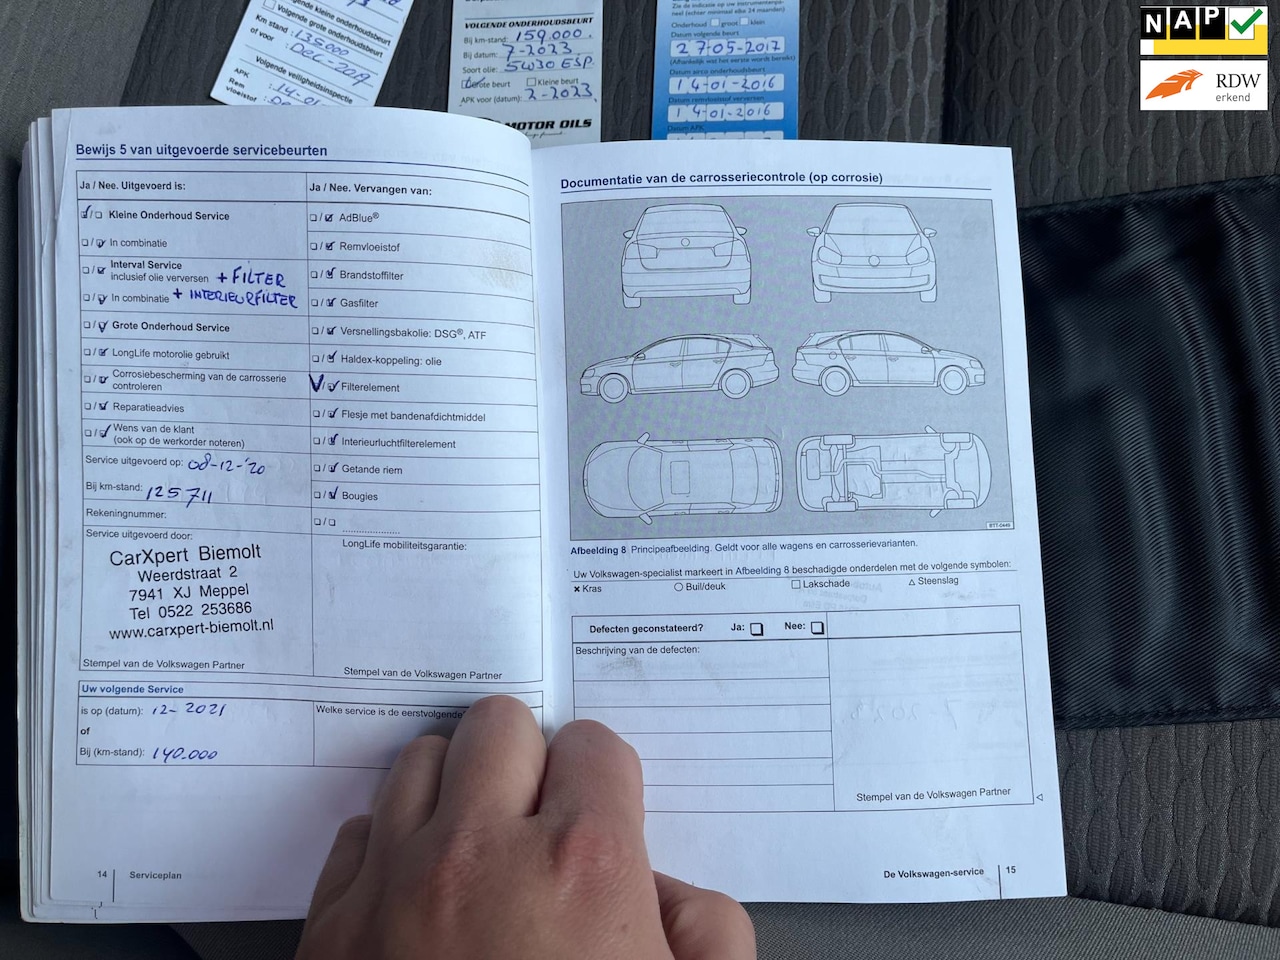 Volgende kleine onderhoudsbeurt
Volgende grote onderhoudsbeurt
Km stand : 135000
of voor : Dec-2017
Volgende veiligheidsinspectie
APK : 14-01-
Rem
vloeistof :
VOLGENDE ONDERHOUDSBEURT
Bij km-stand: 159000.
Bij datum: 7-2023
Soort olie: 5W30 ESP.
Grote beurt Kleine beurt
APK voor (datum): 2-2023
MOTOR OILS
Zie de indicatie op uw instrumentenpa-
neel (echter minimaal elke 24 maanden)
Onderhoud groot klein
Datum volgende beurt
27-05-2017
(Afhankelijk wat het eerste wordt bereikt)
Datum airco onderhoudsbeurt
14-01-2016
Datum remvloeistof verversen
14-01-2016
Datum APK
NAP
RDW
erkend
Bewijs 5 van uitgevoerde servicebeurten
Ja / Nee. Uitgevoerd is:
Kleine Onderhoud Service
In combinatie
Interval Service
inclusief olie verversen + FILTER
In combinatie + INTERIEURFILTER
Grote Onderhoud Service
LongLife motorolie gebruikt
Corrosiebescherming van de carrosserie
controleren
Reparatieadvies
Wens van de klant
(ook op de werkorder noteren)
Service uitgevoerd op: 08-12-'20
Bij km-stand: 125711
Rekeningnummer:
Service uitgevoerd door:
CarXpert Biemolt
Weerdstraat 2
7941 XJ Meppel
Tel 0522 253686
www.carxpert-biemolt.nl
Stempel van de Volkswagen Partner
Ja / Nee. Vervangen van:
AdBlue®
Remvloeistof
Brandstoffilter
Gasfilter
Versnellingsbakolie: DSG®, ATF
Haldex-koppeling: olie
Filterelement
Flesje met bandenafdichtmiddel
Interieurluchtfilterelement
Getande riem
Bougies
LongLife mobiliteitsgarantie:
Stempel van de Volkswagen Partner
Uw volgende Service
is op (datum): 12-2021
of
Bij (km-stand): 140.000
Welke service is de eerstvolgende
14 Serviceplan
Documentatie van de carrosseriecontrole (op corrosie)
BTT-0446
Afbeelding 8 Principeafbeelding. Geldt voor alle wagens en carrosserievarianten.
Uw Volkswagen-specialist markeert in Afbeelding 8 beschadigde onderdelen met de volgende symbolen:
× Kras ○ Buil/deuk □ Lakschade △ Steenslag
Defecten geconstateerd? Ja: Nee:
Beschrijving van de defecten:
Stempel van de Volkswagen Partner
De Volkswagen-service 15